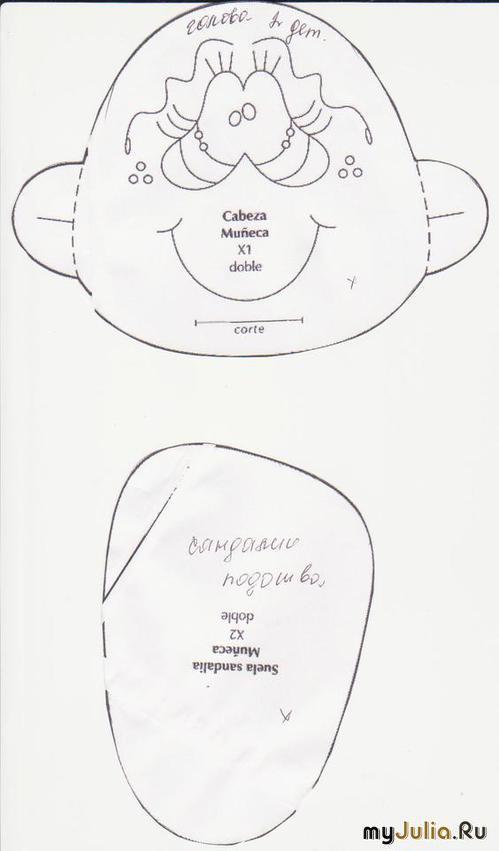 голова 2 дет.
Cabeza
Muñeca
X1
doble
corte
сандалии
подошва
Suela sandalia
Muñeca
X2
doble
myJulia.Ru